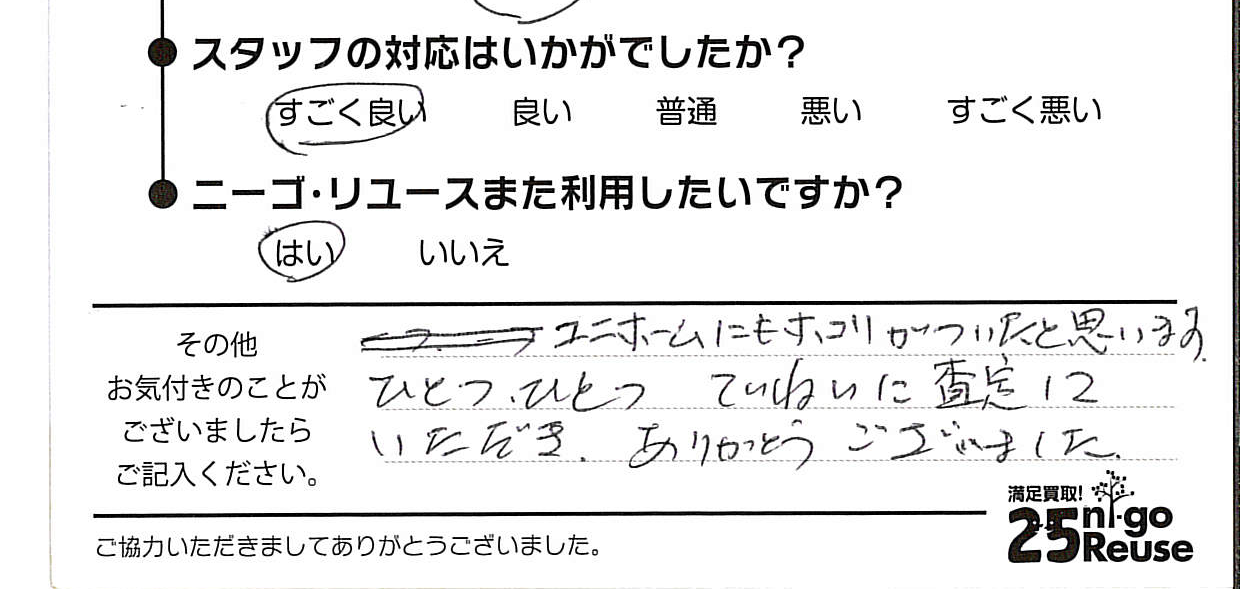 スタッフの対応はいかがでしたか?
すごく良い 良い 普通 悪い すごく悪い
ニーゴ・リユースまた利用したいですか?
はい いいえ
その他
お気付きのことが
ございましたら
ご記入ください。
ユニホームにもホコリがついたと思います。
ひとつ、ひとつ ていねいに査定に
いただき、ありがとうございました。
満足買取!
25 ni-go
Reuse
ご協力いただきましてありがとうございました。